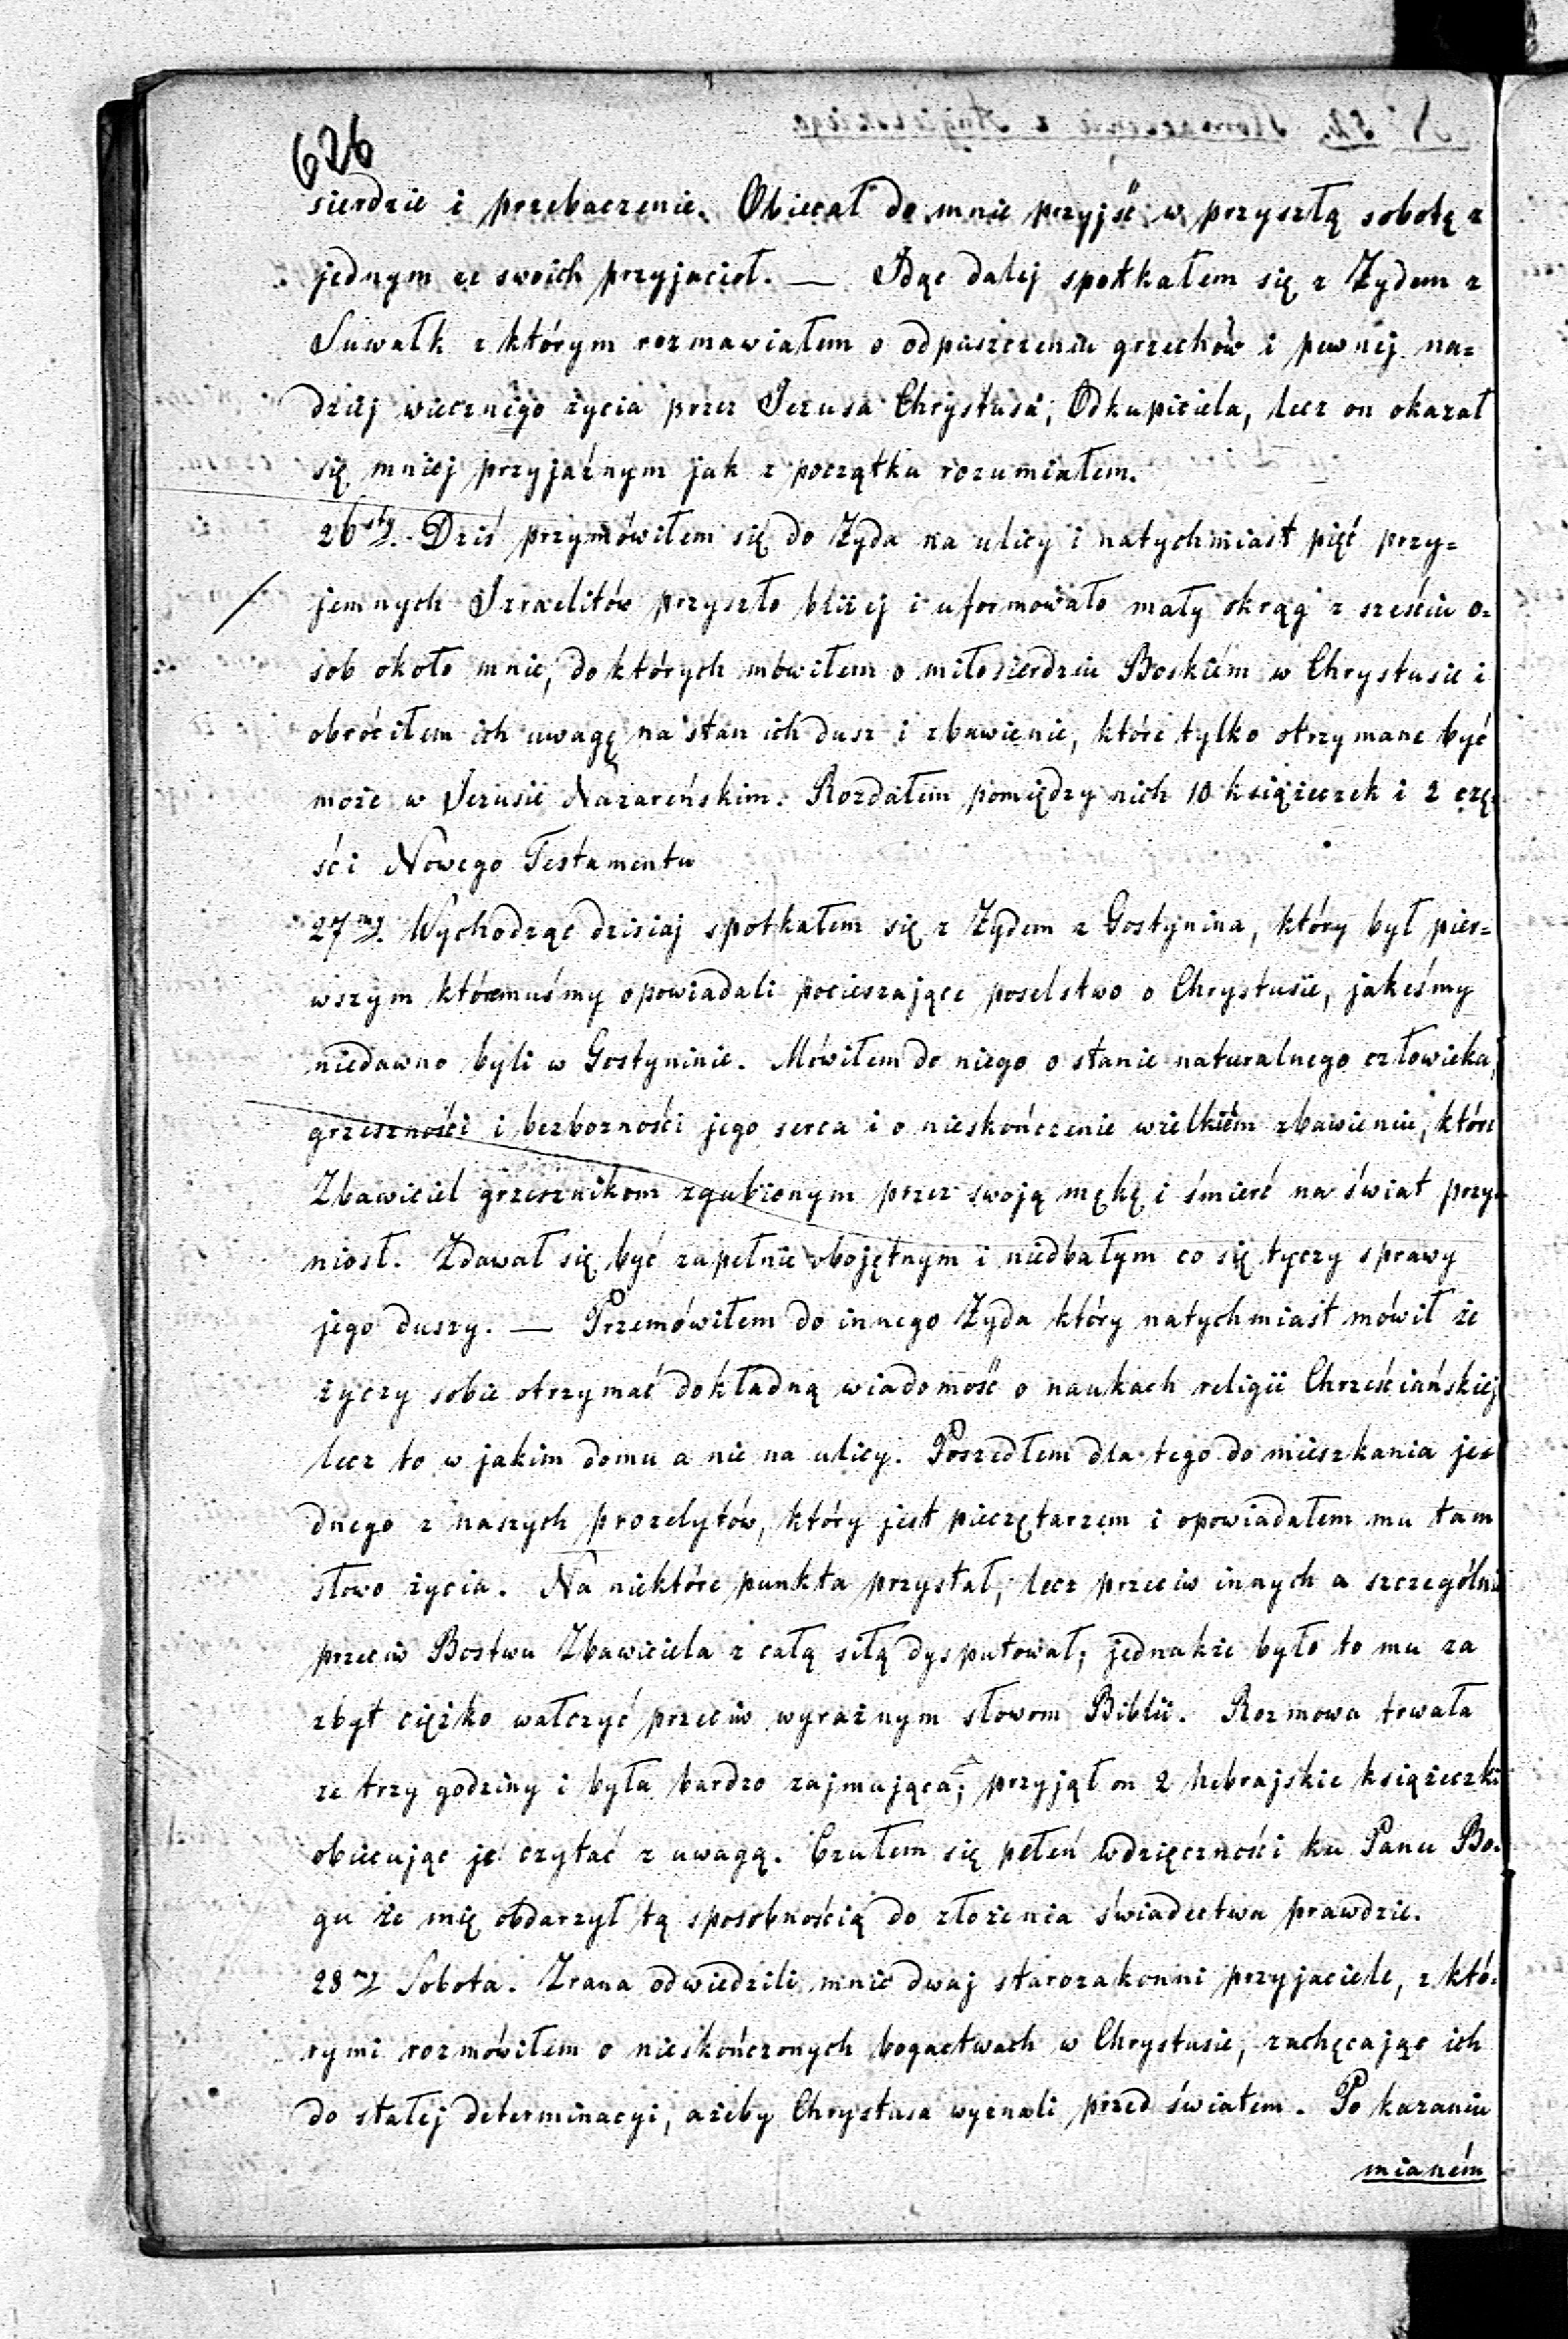 626
sierdzie i przebaczenie. Obiecał do mnie przyjść w przyszłą sobotę z
jednym ze swoich przyjacioł. — Idąc dalej spotkałem się z Żydem z
Suwałk z którym rozmawiałem o odpuszczeniu grzechów i pewnej na=
dziej wiecznego życia przez Jezusa Chrystusa, Odkupiciela, lecz on okazał
się mniej przyjaźnym jak z początku rozumiałem.
26sty. Dziś przymówiłem się do Żyda na ulicy i natychmiast pięć przy=
jemnych Izraelitów przyszło bliżej i uformowało mały okrąg z sześciu o=
sob około mnie, do których mówiłem o miłosierdziu Boskiém w Chrystusie i
obróciłem ich uwagę na stan ich dusz i zbawienie, które tylko otrzymane być
może w Jezusie Nazareńskim. Rozdałem pomiędzy nich 10 książeczek i 2 czę=
ści Nowego Testamentu
27my. Wychodząc dzisiaj spotkałem się z Żydem z Gostynina, który był pier=
wszym któremuśmy opowiadali pocieszające poselstwo o Chrystusie, jakeśmy
niedawno byli w Gostyninie. Mówiłem do niego o stanie naturalnego człowieka,
grzeszności i bezbożności jego serca i o nieskończenie wielkiém zbawieniu, które
Zbawiciel grzesznikom zgubionym przez swoją mękę i śmierć na świat przy=
niosł. Zdawał się być zapełnie obojętnym i niedbałym co się tyczy sprawy
jego duszy. — Przemówiłem do innego Żyda który natychmiast mówił że
życzy sobie otrzymać dokładną wiadomość o naukach religii Chrześciańskiej
lecz to w jakim domu a nie na ulicy. Poszedłem dla tego do mieszkania je=
dnego z naszych prozelytów, który jest pieczętarzem i opowiadałem mu tam
słowo życia. Na niektóre punkta przystał, lecz przeciw innych a szczególnie
przeciw Bostwu Zbawiciela z całą siłą dysputował; jednakże było to mu za
zbyt ciężko walczyć przeciw wyraźnym słowom Biblii. Rozmowa trwała
ze trzy godziny i była bardzo zajmująca; przyjął on 2 hebrajskie książeczki
obiecując je czytać z uwagą. Czułem się pełeń wdzięczności ku Panu Bo=
gu że mię obdarzył tą sposobnością do złożenia świadectwa prawdzie.
28my Sobota. Zrana odwiedzili mnie dwaj starozakonni przyjaciele, z któ=
rymi rozmówiłem o nieskończonych bogactwach w Chrystusie, zachęcając ich
do stałej determinacyi, ażeby Chrystusa wyznali przed światem. Po kazaniu
mianém